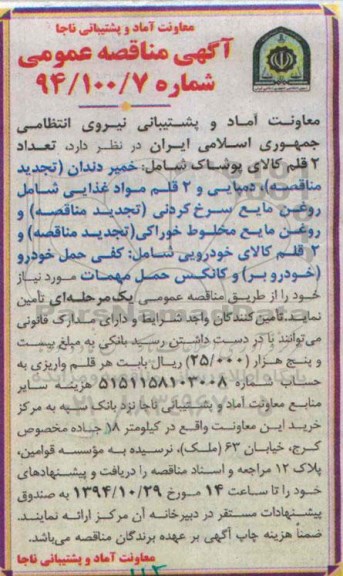 معاونت آماد و پشتیبانی ناجا
آگهی مناقصه عمومی
شماره ۹۴/۱۰۰/۷
معاونت آماد و پشتیبانی نیروی انتظامی
جمهوری اسلامی ایران در نظر دارد، تعداد
۲ قلم کالای پوساک شامل: خمیر دندان (تجدید
مناقصه)، دمپایی و ۲ قلم مواد غذایی شامل
روغن مایع سرخ کردنی (تجدید مناقصه) و
روغن مایع مخلوط خوراکی(تجدید مناقصه) و
۲ قلم کالای خودرویی شامل: کفی حمل خودرو
(خودرو بر) و کانکس حمل مهمات مورد نیاز
خود را از طریق مناقصه عمومی یک مرحله‌ای تأمین
نماید.تأمین کنندگان واجد شرایط و دارای مدارک قانونی
می‌توانند با در دست داشتن رسید بانکی به مبلغ بیست
و پنج هزار (۲۵/۰۰۰) ریال بابت هر قلم واریزی به
حساب شماره ۵۱۵۱۱۵۸۱۰۳۰۰۸ هزینه سایر
منابع معاونت آماد و پشتیبانی ناجا نزد بانک سپه به مرکز
خرید این معاونت واقع در کیلومتر ۱۸ جاده مخصوص
کرج، خیابان ۶۳ (ملک)، نرسیده به مؤسسه قوامین،
پلاک ۱۲ مراجعه و اسناد مناقصه را دریافت و پیشنهادهای
خود را تا ساعت ۱۴ مورخ ۱۳۹۴/۱۰/۲۹ به صندوق
پیشنهادات مستقر در دبیرخانه آن مرکز ارائه نمایند.
ضمناً هزینه چاپ آگهی بر عهده برندگان مناقصه می‌باشد.
معاونت آماد و پشتیبانی ناجا